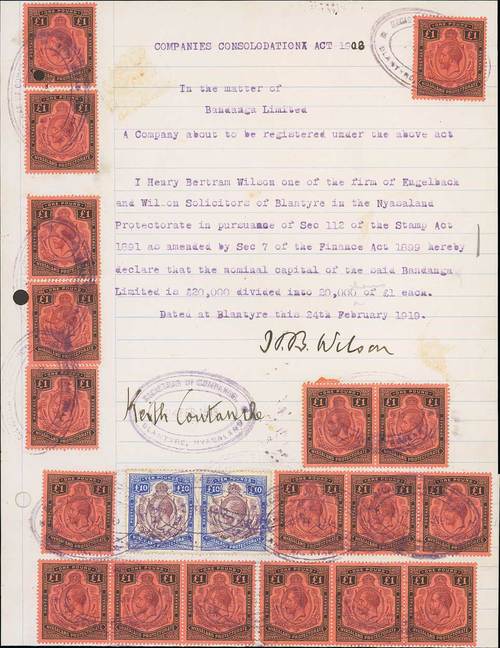 COMPANIES CONSOLODATION ACT 1908
In the matter of
Bandanga Limited
A Company about to be registered under the above act
I Henry Bertram Wilson one of the firm of Engelback
and Wilson Solicitors of Blantyre in the Nyasaland
Protectorate in pursuance of Sec 112 of the Stamp Act
1891 as amended by Sec 7 of the Finance Act 1899 hereby
declare that the nominal capital of the said Bandanga
Limited is £20,000 divided into 20,000 of £1 each.
Dated at Blantyre this 24th February 1919.
H.B. Wilson
REGISTRAR OF COMPANIES
BLANTYRE, NYASALAND
Keith
ONE POUND
£1 £1
NYASALAND PROTECTORATE
TEN POUNDS
£10 £10
NYASALAND PROTECTORATE